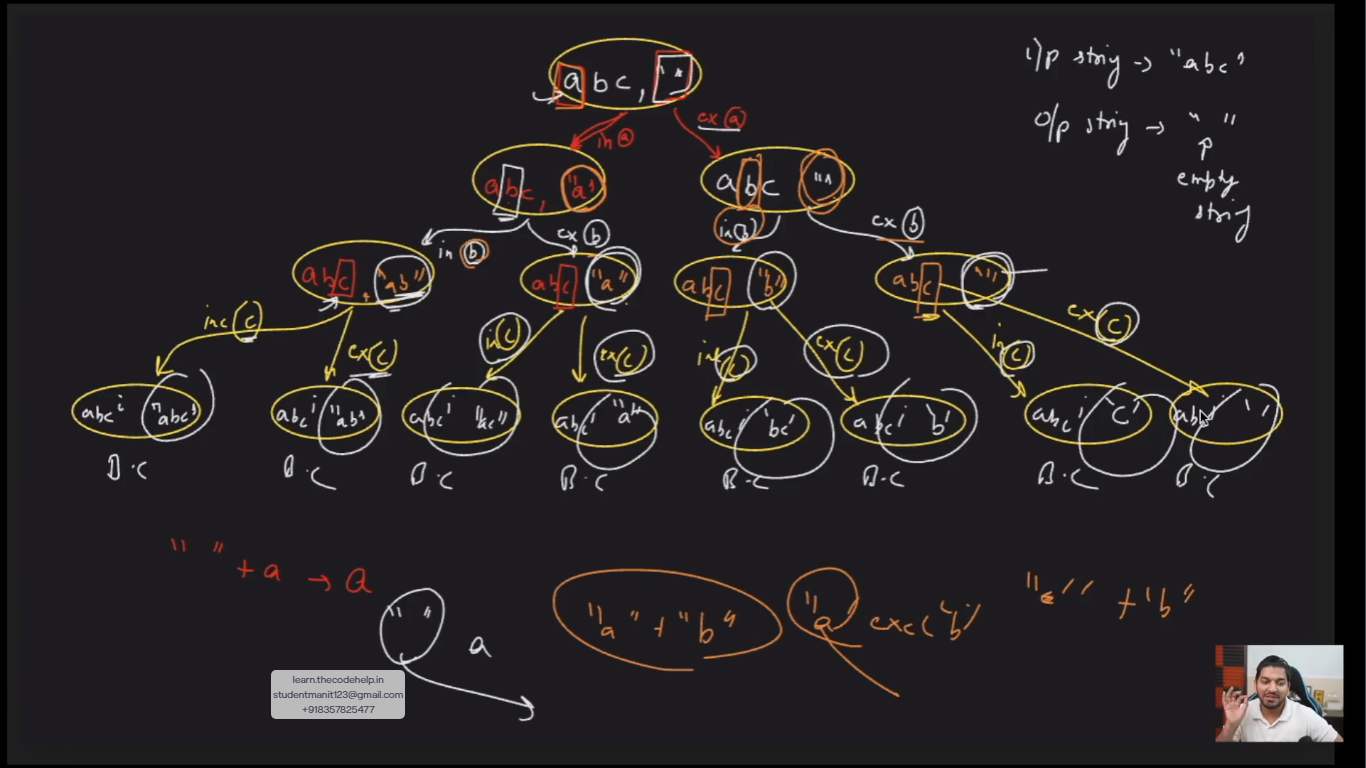 abc, " "
i/p string → "abc"
o/p string → " "
empty
string
in a
ex a
abc, "a"
abc ""
in b
ex b
in(b)
ex b
abc, "ab"
abc "a"
abc "b"
abc ""
inc c
ex(c)
in(c)
ex(c)
in(c)
ex(c)
in(c)
ex(c)
abc "abc"
abc "ab"
abc "ac"
abc "a"
abc 'bc'
abc 'b'
abc 'c'
abc ' '
B.C
B.C
B.C
B.C
B.C
B.C
B.C
B.C
" " + a → a
" " a
"a" + "b"
"a" exc('b')
+ "b"
learn.thecodehelp.in
studentmanit123@gmail.com
+918357825477